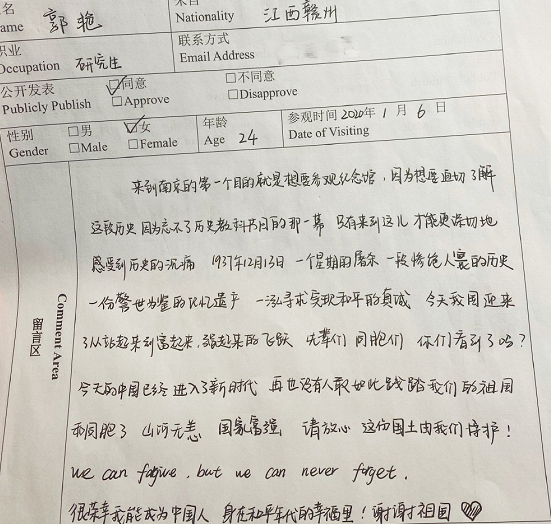 名 郭艳 来自 江西赣州
ame Nationality
职业 研究生 联系方式
Occupation Email Address
公开发表 ☑同意 □不同意
Publicly Publish □Approve □Disapprove
性别 □男 ☑女 年龄 24 参观时间 2020年 1 月 6 日
Gender □Male □Female Age Date of Visiting
留言区
Comment Area
来到南京的第一个目的就是想要参观纪念馆,因为想要真切了解
这段历史 因为忘不了历史教科书目的那一幕 只有来到这儿 才能更深切地
感受到历史的沉痛 1937年12月13日 一个星期的屠杀 一段惨绝人寰的历史
一份警世为鉴的记忆遗产 一泓寻求实现和平的真诚 今天我国迎来
了从站起来到富起来,强起来的飞跃 先辈们 同胞们 你们看到了吗?
今天的中国已经进入了新时代 再也没有人敢如此践踏我们的祖国
和同胞了 山河无恙 国家富强 请放心 这份国土由我们守护!
we can forgive, but we can never forget.
很荣幸我能成为中国人 身在和平年代的幸福里!谢谢祖国 ♡